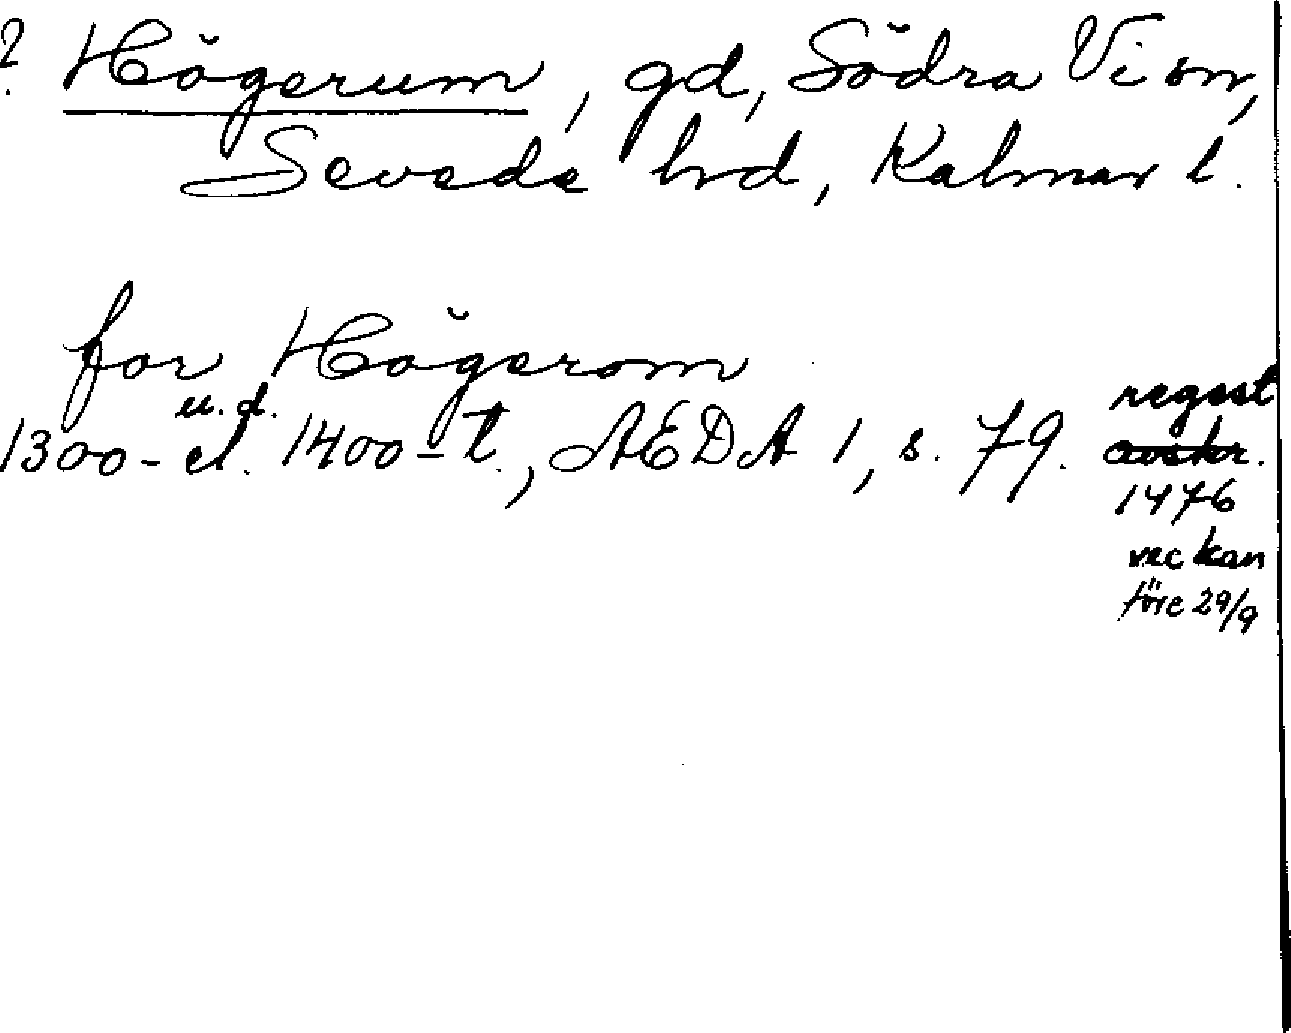 ? Högerum, gd, Södra Vi sn,
Sevede hd, Kalmar l.
for Högerom
u.d.
1300- el. 1400-t., AEDA 1, s. 79. regest
avskr.
1476
veckan
före 29/9